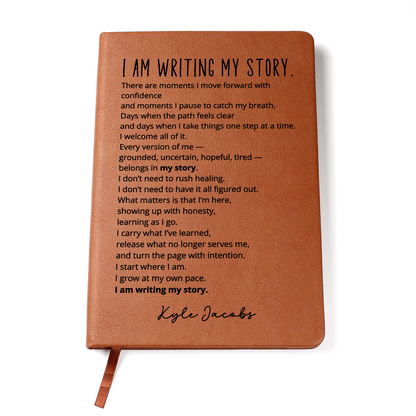 I AM WRITING MY STORY.
There are moments I move forward with
confidence
and moments I pause to catch my breath.
Days when the path feels clear
and days when I take things one step at a time.
I welcome all of it.
Every version of me —
grounded, uncertain, hopeful, tired —
belongs in my story.
I don't need to rush healing.
I don't need to have it all figured out.
What matters is that I'm here,
showing up with honesty,
learning as I go.
I carry what I've learned,
release what no longer serves me,
and turn the page with intention.
I start where I am.
I grow at my own pace.
I am writing my story.
Kyle Jacobs